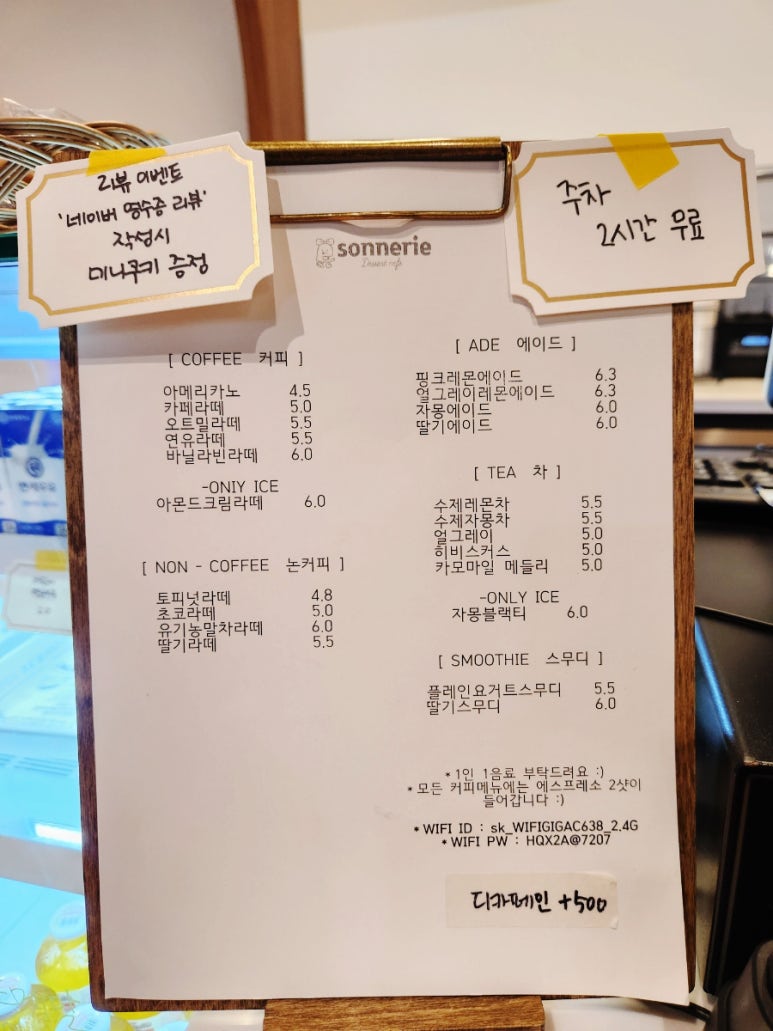 리뷰 이벤트
'네이버 영수증 리뷰'
작성시
미니쿠키 증정
주차
2시간 무료
sonnerie
Dessert cafe
[ COFFEE 커피 ]
아메리카노 4.5
카페라떼 5.0
오트밀라떼 5.5
연유라떼 5.5
바닐라빈라떼 6.0
-ONIY ICE
아몬드크림라떼 6.0
[ NON - COFFEE 논커피 ]
토피넛라떼 4.8
초코라떼 5.0
유기농말차라떼 6.0
딸기라떼 5.5
[ ADE 에이드 ]
핑크레몬에이드 6.3
얼그레이레몬에이드 6.3
자몽에이드 6.0
딸기에이드 6.0
[ TEA 차 ]
수제레몬차 5.5
수제자몽차 5.5
얼그레이 5.0
히비스커스 5.0
카모마일 메들리 5.0
-ONLY ICE
자몽블랙티 6.0
[ SMOOTHIE 스무디 ]
플레인요거트스무디 5.5
딸기스무디 6.0
* 1인 1음료 부탁드려요 :)
* 모든 커피메뉴에는 에스프레소 2샷이
들어갑니다 :)
* WIFI ID : sk_WIFIGIGAC638_2.4G
* WIFI PW : HQX2A@7207
디카페인 +500
연세우유